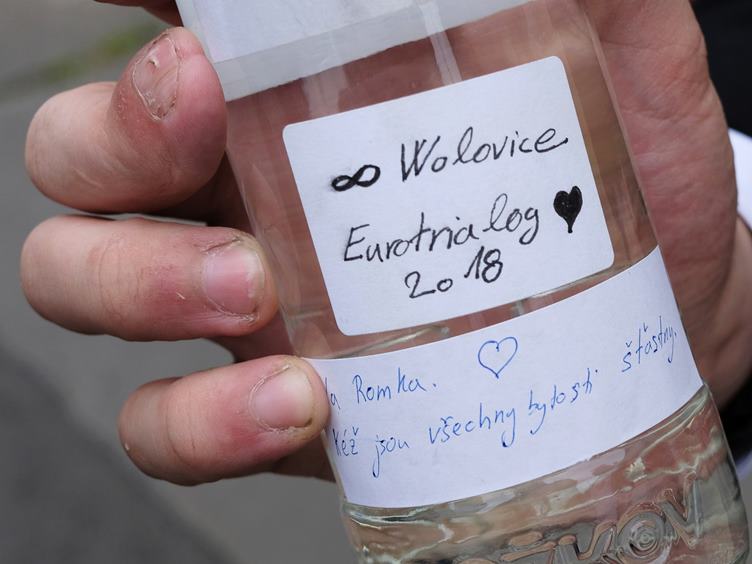 ∞ Wolovice
Eurotrialog ♥
2018
la Romka. ♡
Kéž jsou všechny bytosti šťastny.